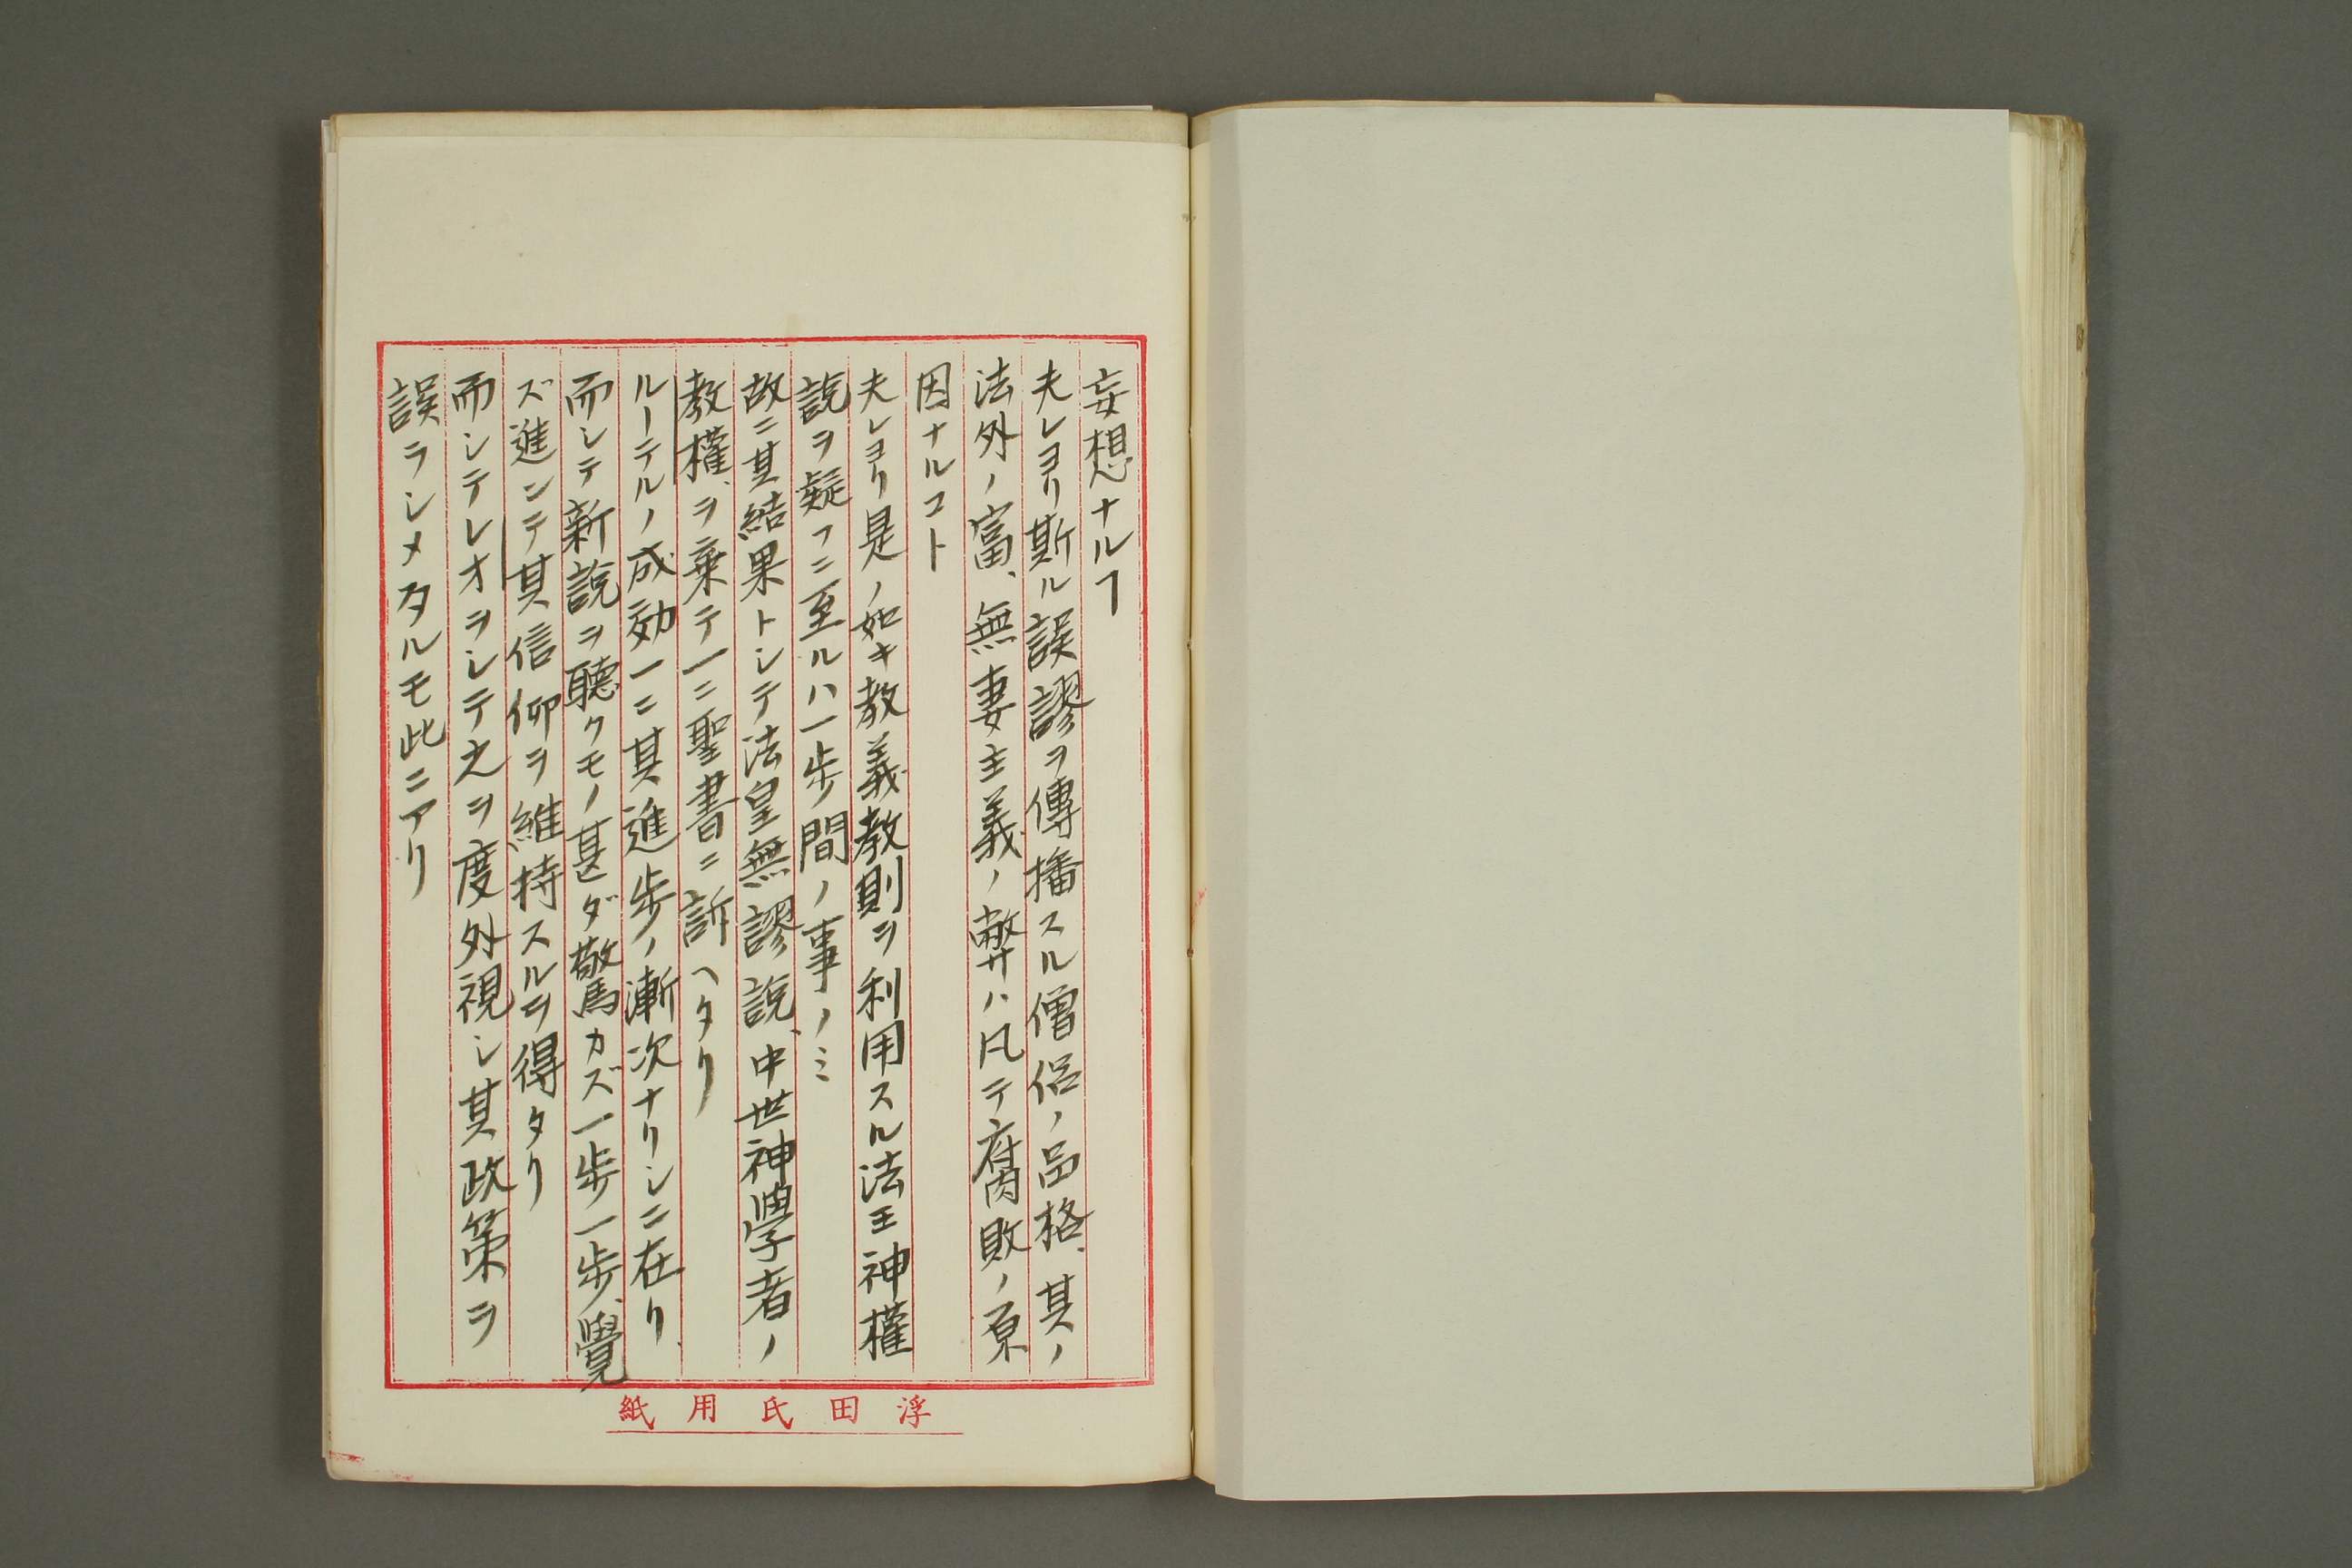 妄想ナルヿ
夫レヨリ斯ル誤謬ヲ傳播スル僧侶ノ品格、其ノ
法外ノ富、無妻主義ノ弊ハ凡テ腐敗ノ原
因ナルコト
夫レヨリ是ノ如キ教義教則ヲ利用スル法王神權
說ヲ疑フニ至ルハ一歩間ノ事ノミ
故ニ其結果トシテ法皇無謬說、中世神學者ノ
教權、ヲ棄テ一ニ聖書ニ訴ヘタリ
ルーテルノ成効一ニ其進歩ノ漸次ナリシニ在リ
而シテ新說ヲ聽クモノ甚ダ驚カズ一歩一歩、覺
ズ進ンデ其信仰ヲ維持スルヲ得タリ
而シテレオヲシテ之ヲ度外視シ其政策ヲ
誤ラシメタルモ此ニアリ
浮田氏用紙